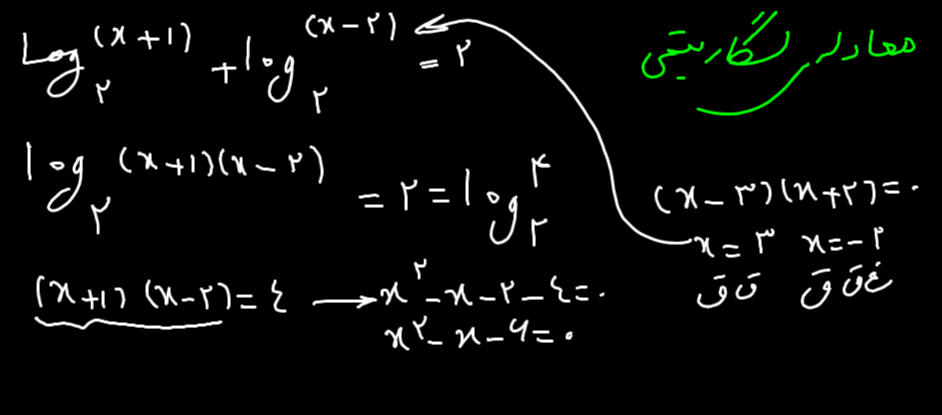 معادله لگاریتمی
Log₂^(x+۱) + log₂^(x-۲) = ۲
log₂^(x+۱)(x-۲) = ۲ = log₂^۴
(x+۱)(x-۲) = ٤ → x^۲-x-۲-٤=۰
x^۲-x-۶=۰
(x-۳)(x+۲)=۰
x=۳ x=-۲
ق ق غ ق ق